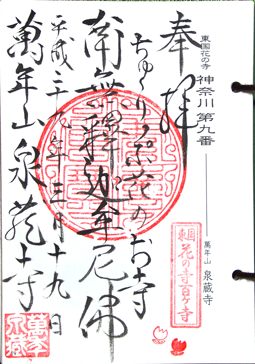 東国花の寺
神奈川 第九番
萬年山 泉蔵寺
奉拝
ちゅーりっぷ花のお寺
南無釋迦牟尼佛
平成二十九年三月十九日
萬年山 泉蔵寺
東国花の寺百ヶ寺